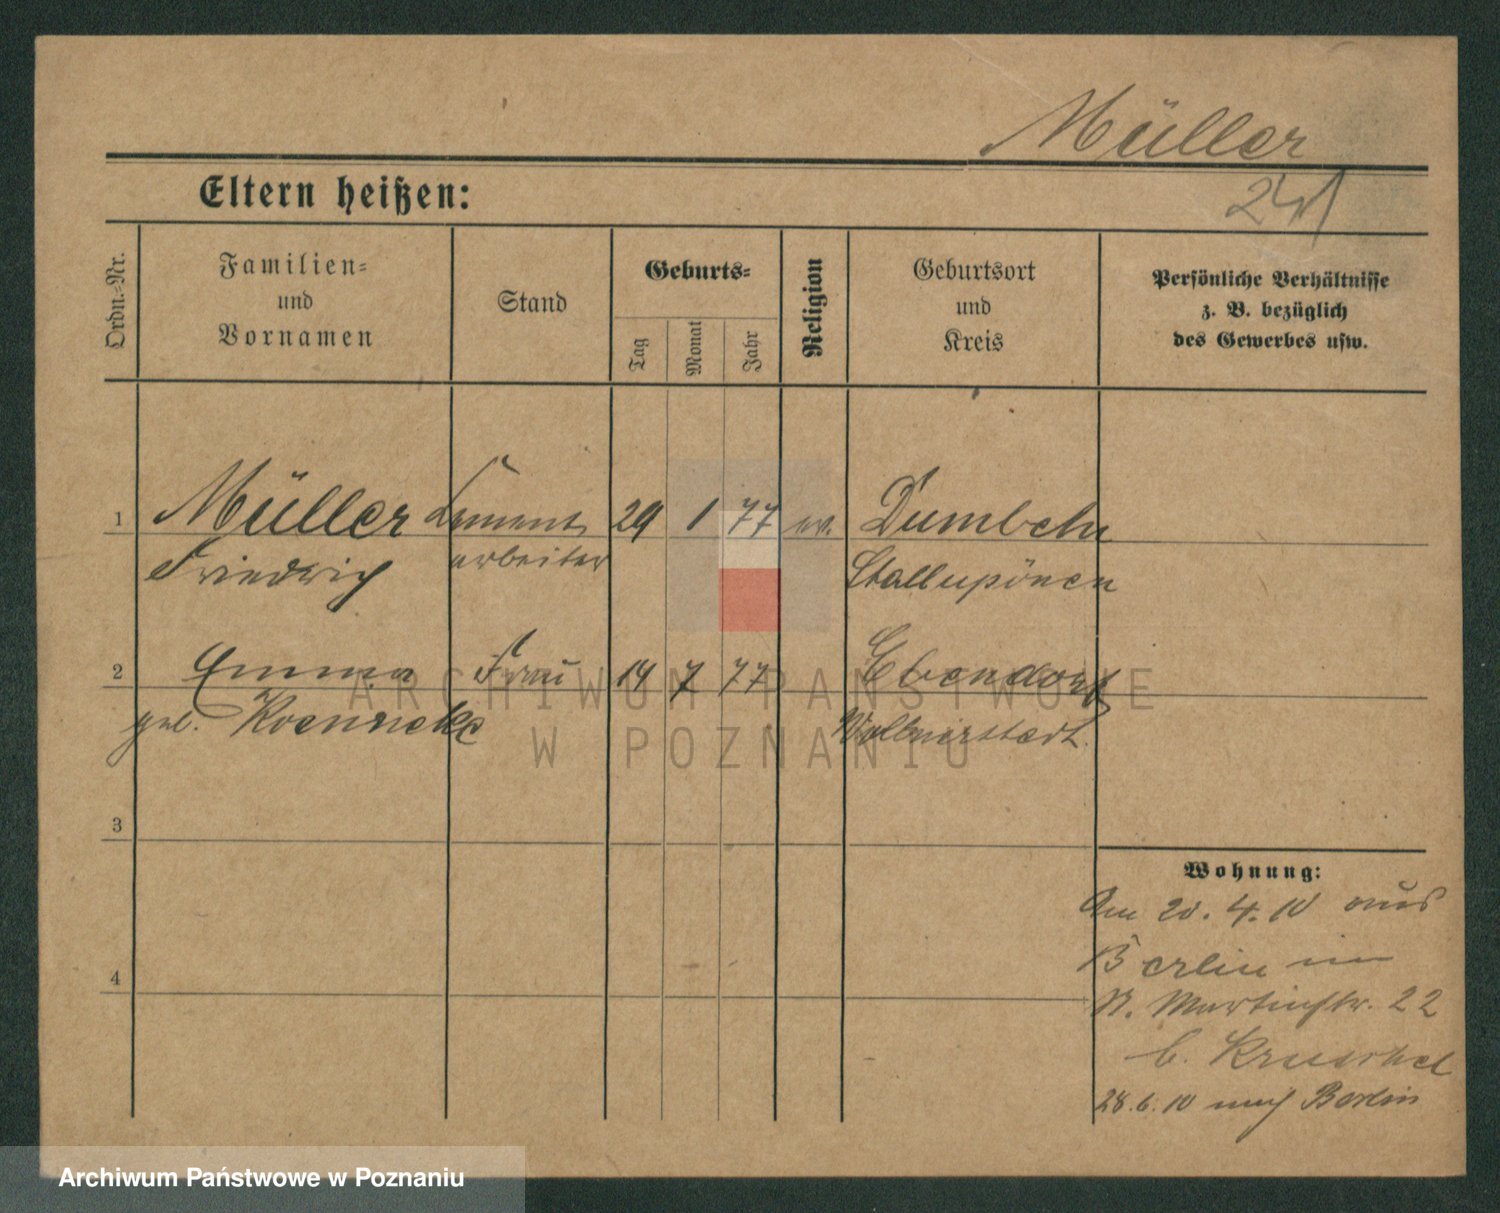 Müller
Eltern heißen:
241
Ordn.-Nr.
Familien-
und
Vornamen
Stand
Geburts-
Tag
Monat
Jahr
Religion
Geburtsort
und
Kreis
Persönliche Verhältnisse
z. B. bezüglich
des Gewerbes usw.
1 Müller Zement 29 1 77 ev. Dumbeln
Friedrich arbeiter Stallupönen
2 Emma Frau 14 7 77 Ebendorf
geb. Koennecke Wollmirstedt.
3
4
Wohnung:
Am 20. 4. 10 aus
Berlin in
St. Martinstr. 22
b. Kruschel
28. 6. 10 nach Berlin
ARCHIWUM PAŃSTWOWE
W POZNANIU
Archiwum Państwowe w Poznaniu